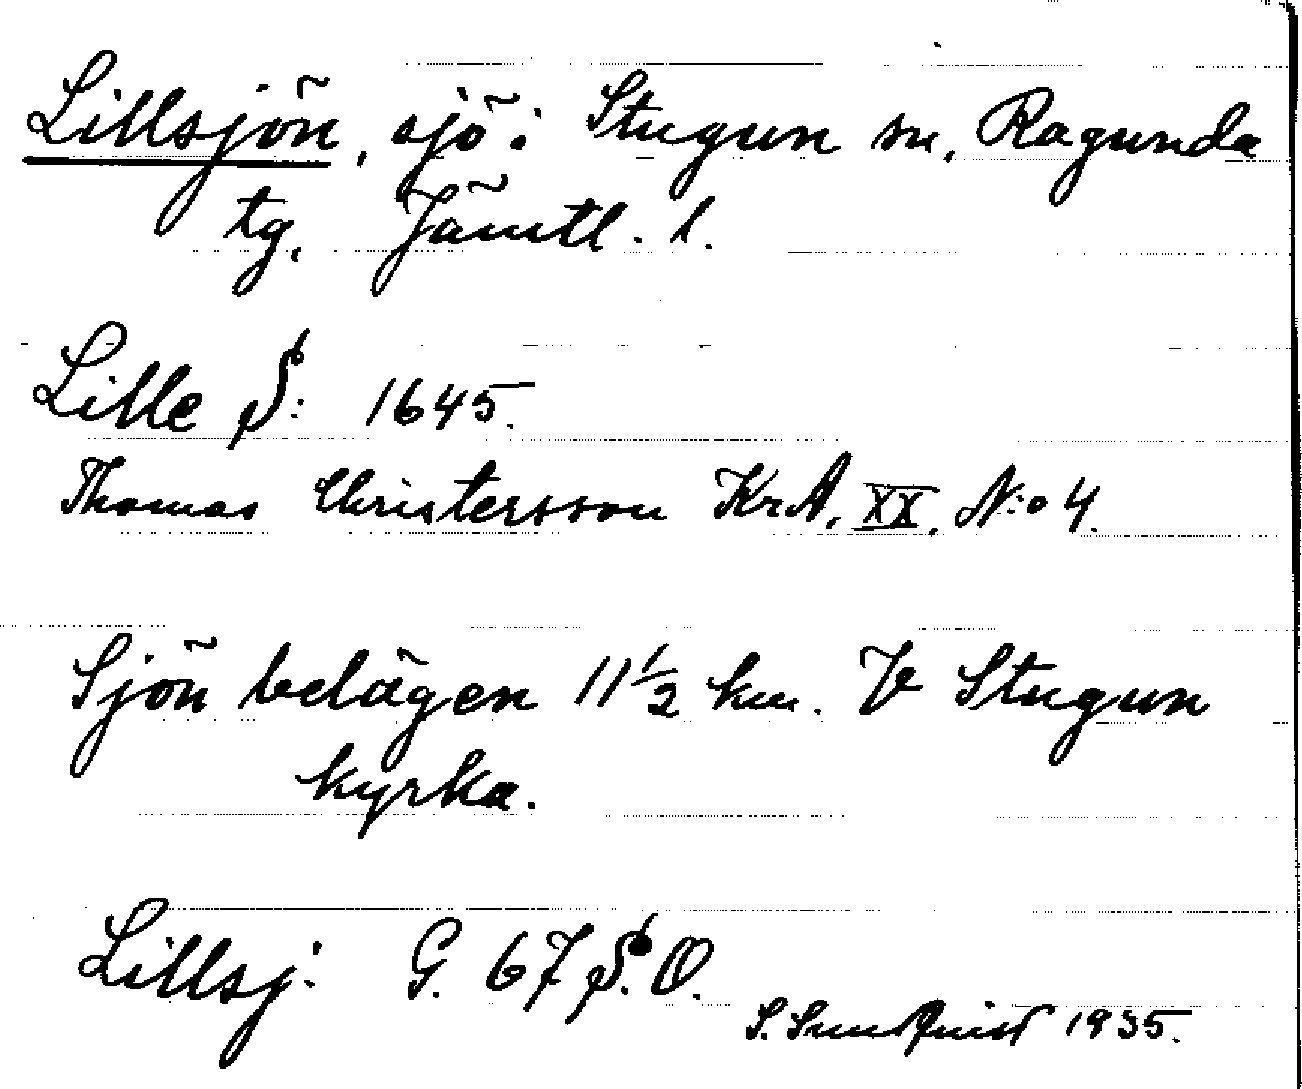 Lillsjön, sjö i Stugun sn, Ragunda
tg, Jämtl. l.
Lille S: 1645.
Thomas Christersson KrA. XX. N:o 4.
Sjön belägen 11 1/2 km. V Stugun
kyrka.
Lillsj: G. 67 S. O.
S. Sundquist 1935.